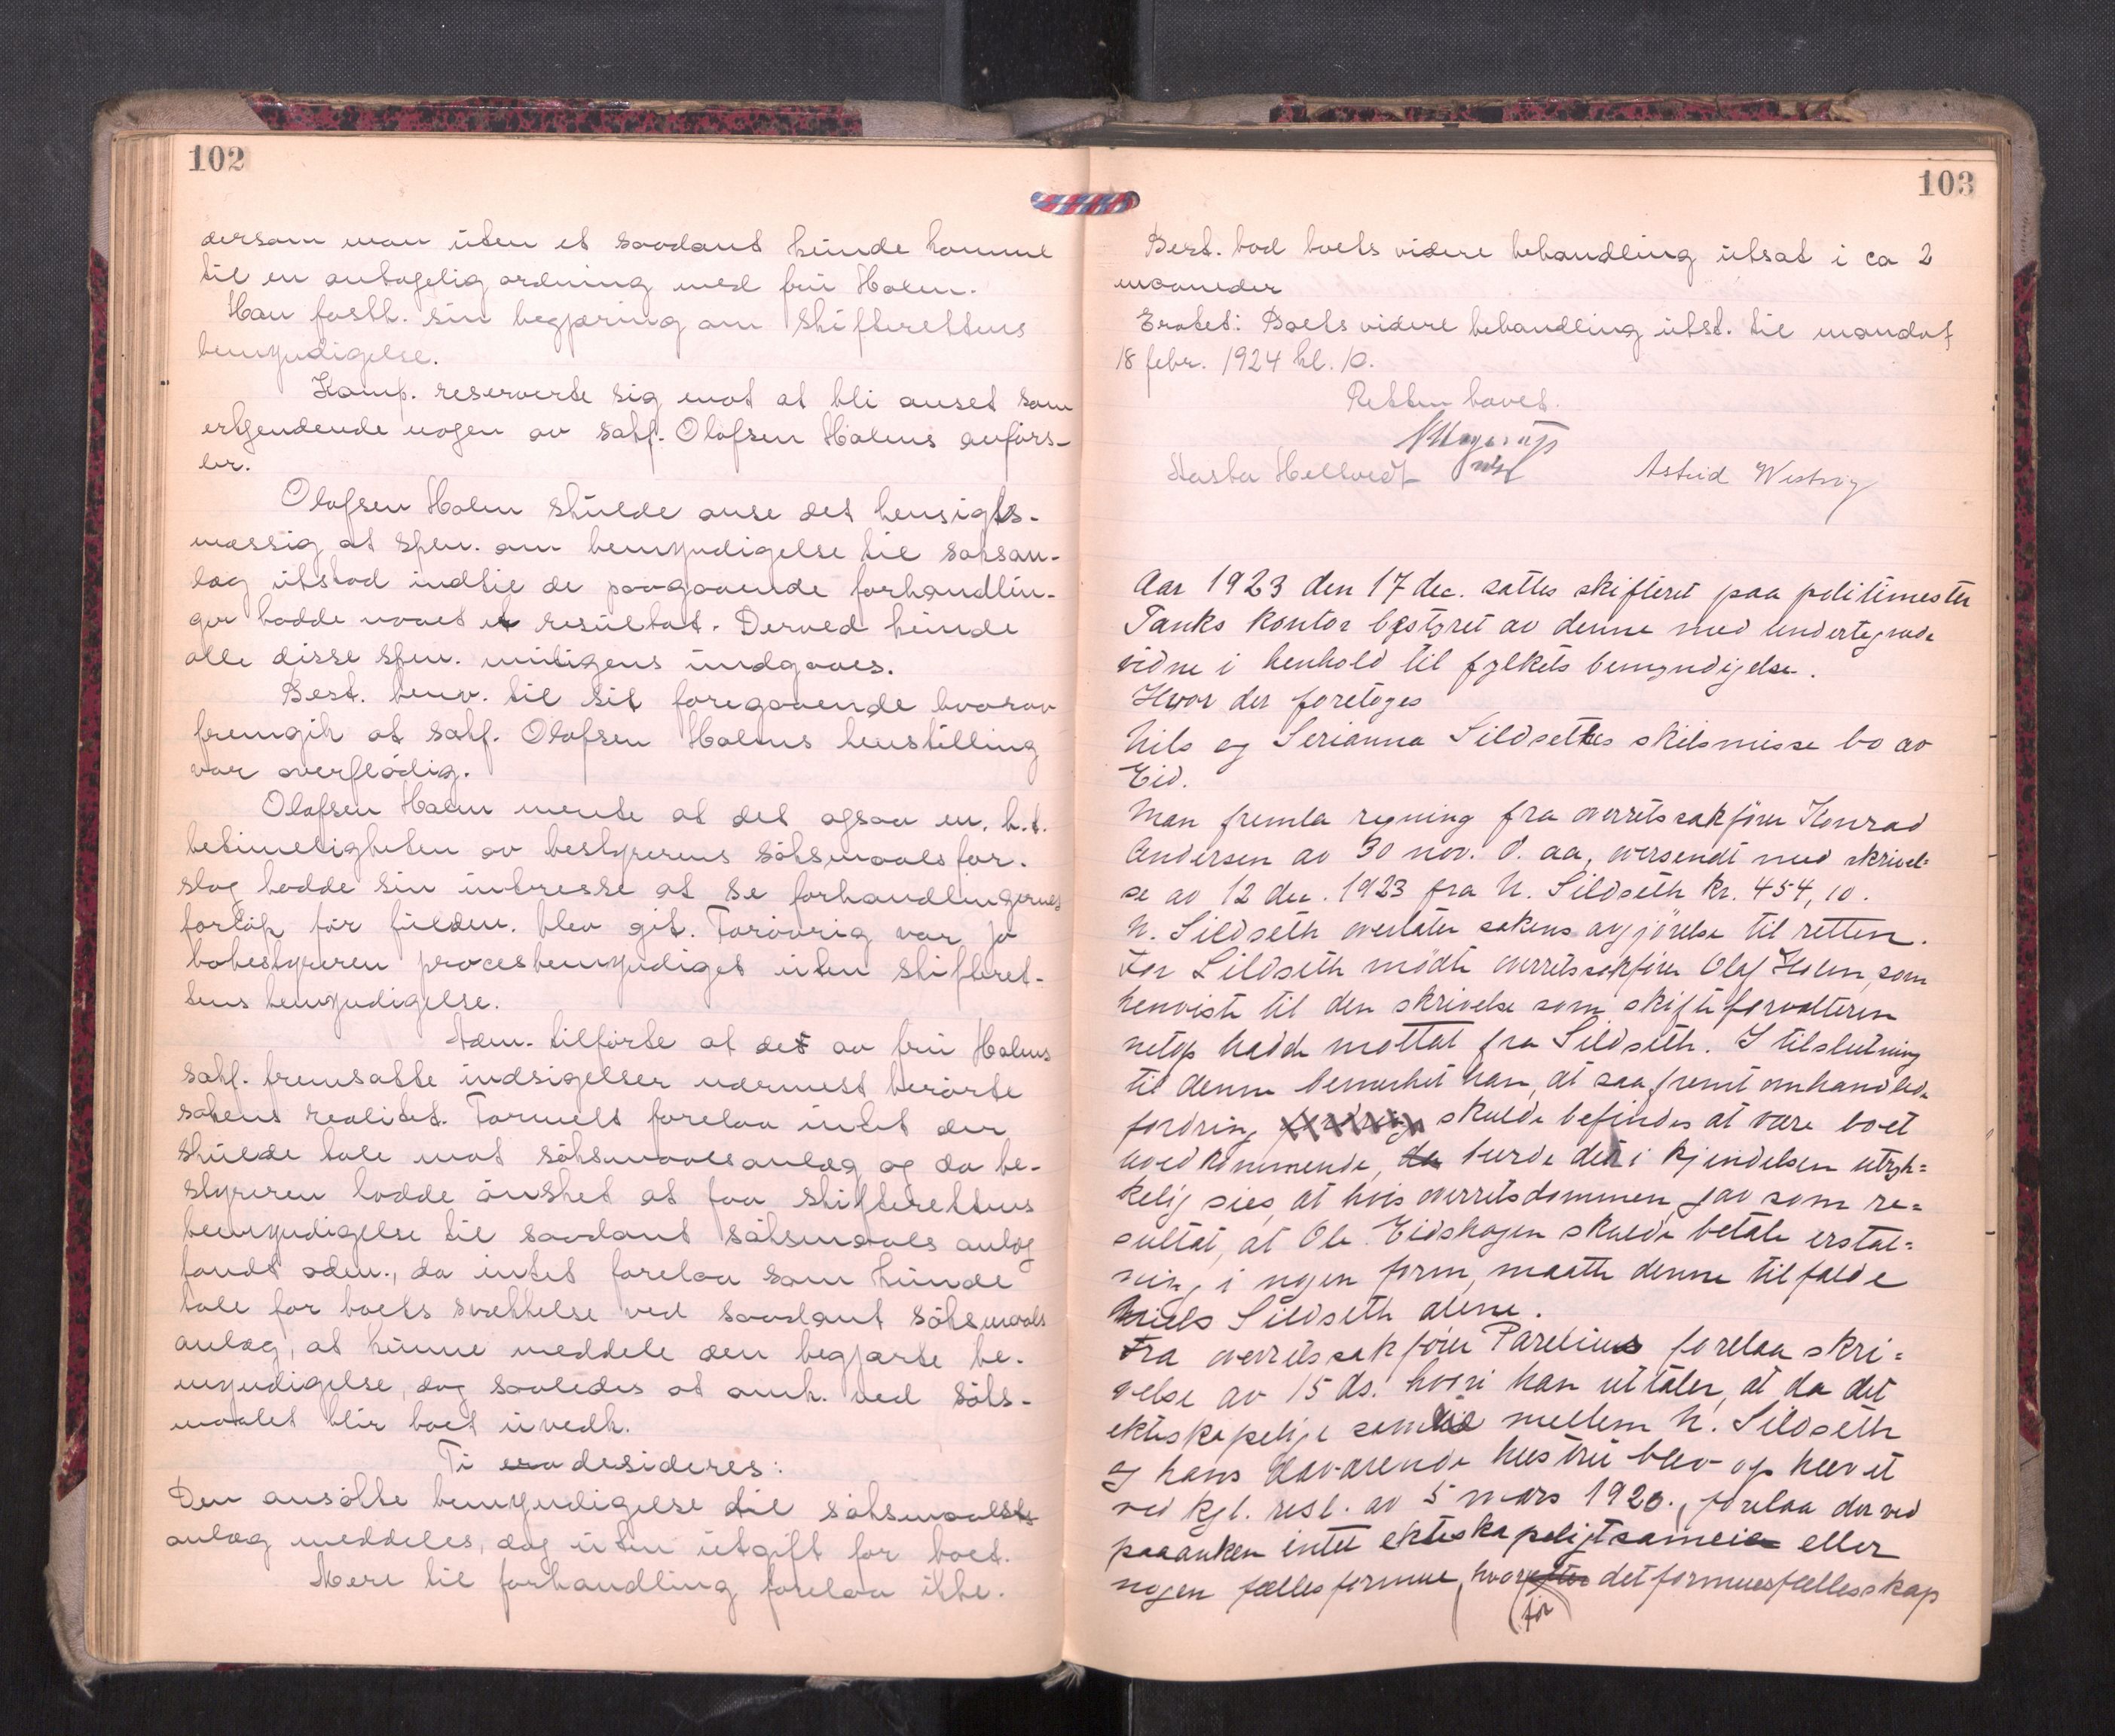 102
dersom man uten et saadant kunde komme
til en antagelig ordning med fru Holm.
Han fasth. sin begjæring om skifterettens
bemyndigelse.
Komp. reserverte sig mot at bli anset som
erkjendende nogen av sakf. Olafsen Holms anførs-
ler.
Olafsen Holm skulde anse det hensigts-
mæssig at spm. om bemyndigelse til saksan-
læg utstod indtil de paagaaende forhandlin-
ger hadde naaet et resultat. Derved kunde
alle disse spm. muligens undgaaes.
Best. henv. til sit foregaaende hvorav
fremgik at sakf. Olafsen Holms henstilling
var overflødig.
Olafsen Holm mente at det ogsaa m. h. t.
betimeligheten av bestyrerens søksmaalsfor-
slag hadde sin interesse at se forhandlingernes
forløp før fuldm. blev git. Forøvrig var jo
bobestyreren procesbemyndiget uten skifteret-
tens bemyndigelse.
Adm. tilførte at det av fru Holms
sakf. fremsatte indsigelser nærmest berørte
sakens realitet. Formelt forelaa intet der
skulde tale mot søksmaalsanlæg og da be-
styreren hadde ønsket at faa skifterettens
bemyndigelse til saadant søksmaals anlæg
fandt adm., da intet forelaa som kunde
tale for boets svækkelse ved saadant søksmaals
anlæg, at kunne meddele den begjærte be-
myndigelse, dog saaledes at omk. ved søks-
maalet blir boet uvedk.
Ti desideres:
Den ansøkte bemyndigelse til søksmaals
anlæg meddeles, dog uten utgift for boet.
Mere til forhandling forelaa ikke.
103
Best. bad boets videre behandling utsat i ca 2
maaneder
Eratet: Boets videre behandling utst. til mandag
18 febr. 1924 kl. 10.
Retten hævet.
Hellvedt Astrid Westvig
Aar 1923 den 17 dec. sattes skifteret paa politimester
Tanks kontor bestyret av denne med undertegnede
vidne i henhold til fylkets bemyndigelse.
Hvor der foretoges
Nils og Serianna Sildsettes skilsmisse bo av
Eid.
Man fremla regning fra overretssakfører Konrad
Andersen av 30 nov. d. aa, oversendt med skrivel=
se av 12 dec. 1923 fra N. Sildseth kr. 454,10.
N. Sildseth overlater sakens avgjørelse til retten.
For Sildseth mødte overretssakfører Olaf Holm, som
henviste til den skrivelse som skifteforvalteren
netop hadde mottat fra Sildseth. I tilslutning
til denne bemerket han, at saafremt omhandlede
fordring fordring skulde befindes at være boet
uvedkommende, da burde det i kjendelsen utryk=
kelig sies, at hvis overretsdommen gav som re=
sultat, at Ole Eidshagen skulde betale erstat=
ning i nogen form, maatte denne tilfalde
Niels Sildseth alene.
Fra overretssakfører Parelius forelaa skri=
velse av 15 ds. hvori han uttaler, at da det
ekteskapelige samliv mellem N. Sildseth
og hans daværende hustru blev ophævet
ved kgl. resl. av 5 mars 1920., forelaa der ved
paaanken intet ekteskapeligt sameie eller
nogen fællesformue, hvorefter det formuesfællesskap
(før)